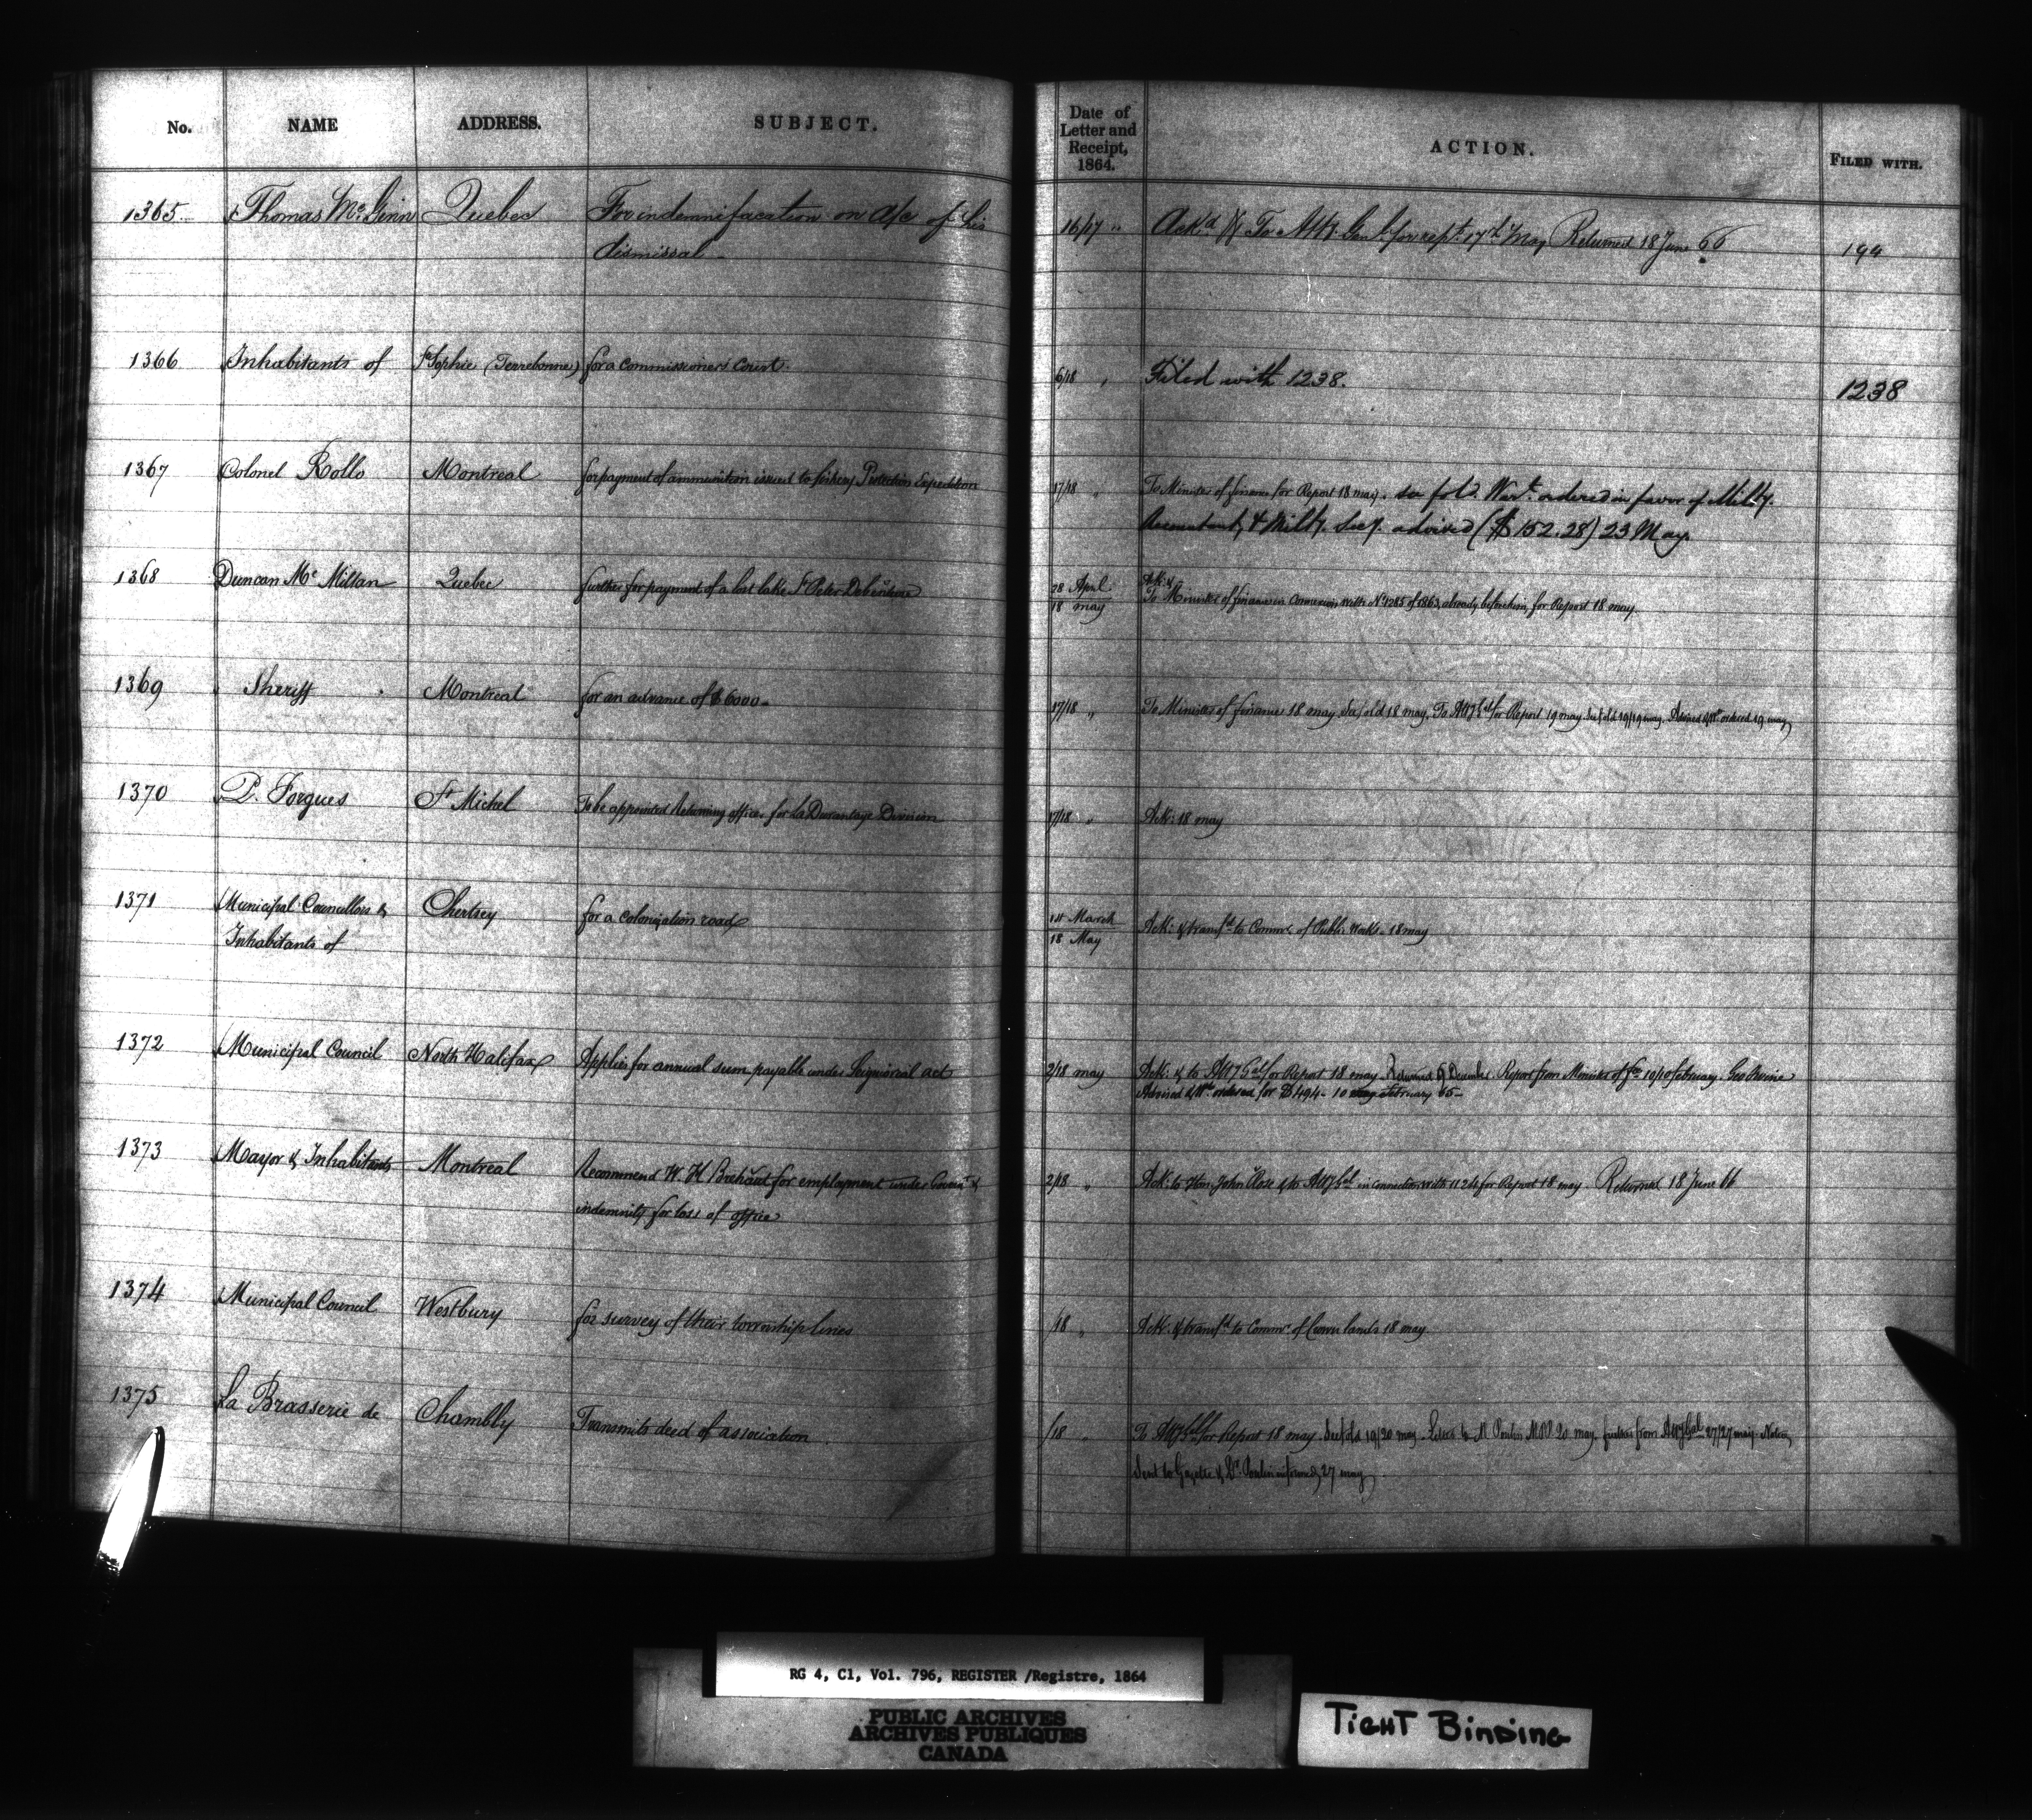 No. NAME ADDRESS. SUBJECT. Date of Letter and Receipt, 1864. ACTION. FILED WITH.
1365 Thomas McGinn Quebec For indemnifacation on a/c of his 16/17 " Ack.d & To Atty. Genl. for rept. 17th May Returned 18 June 66 194
dismissal
1366 Inhabitants of St Sophie (Terrebonne) for a commissioners court. 6/18 " Filed with 1238. 1238
1367 Colonel Rollo Montreal for payment of ammunition issued to fishery Protection Expedition 17/18 " To Minister of finance for Report 18 may. See fold. Wart. ordered in favor of Milty.
Accountant, & Milty. Secy. advised ($152.28) 23 May.
1368 Duncan Mc Millan Quebec further for payment of a lost lake St Peter Debenture 28 April Ack: &
18 may To Minister of finance in Connexion with No 1285 of 1863, already before him, for Report 18 may
1369 Sheriff Montreal for an advance of $6000 17/18 " To Minister of finance 18 may. See fold 18 may. To Atty Gal for Report 19 may. See fold 19/19 may. Advised & Wt ordered 19 may
1370 P. Forgues St Michel To be appointed Returning officer for La Durantaye Division 17/18 " Ack: 18 may
1371 Municipal Councillors & Chertsey for a colonization road 14 March Ack: & transfd to Commr of Public Works. 18 may
Inhabitants of 18 May
1372 Municipal Council North Halifax Applies for annual sum payable under Seigniorial act 2/18 may Ack: & to Atty Gal for Report 18 may. Returned 9 December Report from Minister of fce 10/10 february. Geo Irvine
Advised & Wt. ordered for $494 - 10 may february 65 -
1373 Mayor & Inhabitants Montreal Recommend W. H. Brehaut for employment under Governt & 2/18 " Ack: to Hon. John Rose & to Atty Gal in connection with 1124 for Report 18 may Returned 18 June 66
indemnity for loss of office
1374 Municipal Council Westbury for survey of their township lines /18 " Ack: & transfd to Commr of Crown lands 18 may
1375 La Brasserie de Chambly Transmits deed of association. /18 " To Atty Gal for Report 18 may. See fold 19/20 may. Letter to M Poulin M.P.P. 20 may. further from Atty Gal 27/27 may. Notice
Sent to Gazette & Dr. Poulin informed, 27 may
RG 4, C1, Vol. 796, REGISTER /Registre, 1864
PUBLIC ARCHIVES
ARCHIVES PUBLIQUES
CANADA
TIGHT BINDING